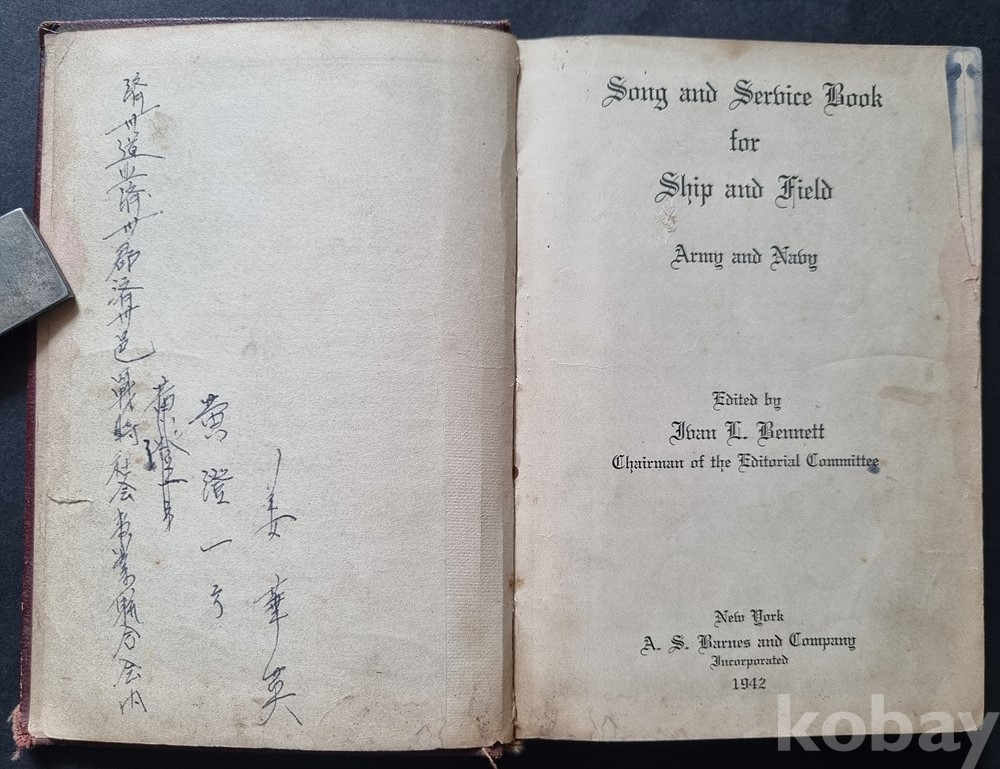 姜華英
黄澄一
黄
濟州道北濟州郡濟州邑戰時社会事業聯合会内
Song and Service Book
for
Ship and Field
Army and Navy
Edited by
Ivan L. Bennett
Chairman of the Editorial Committee
New York
A. S. Barnes and Company
Incorporated
1942
kobay